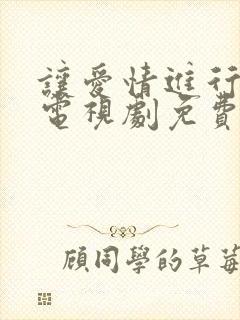 讓愛情進行
電視劇免費
顧同學的草莓